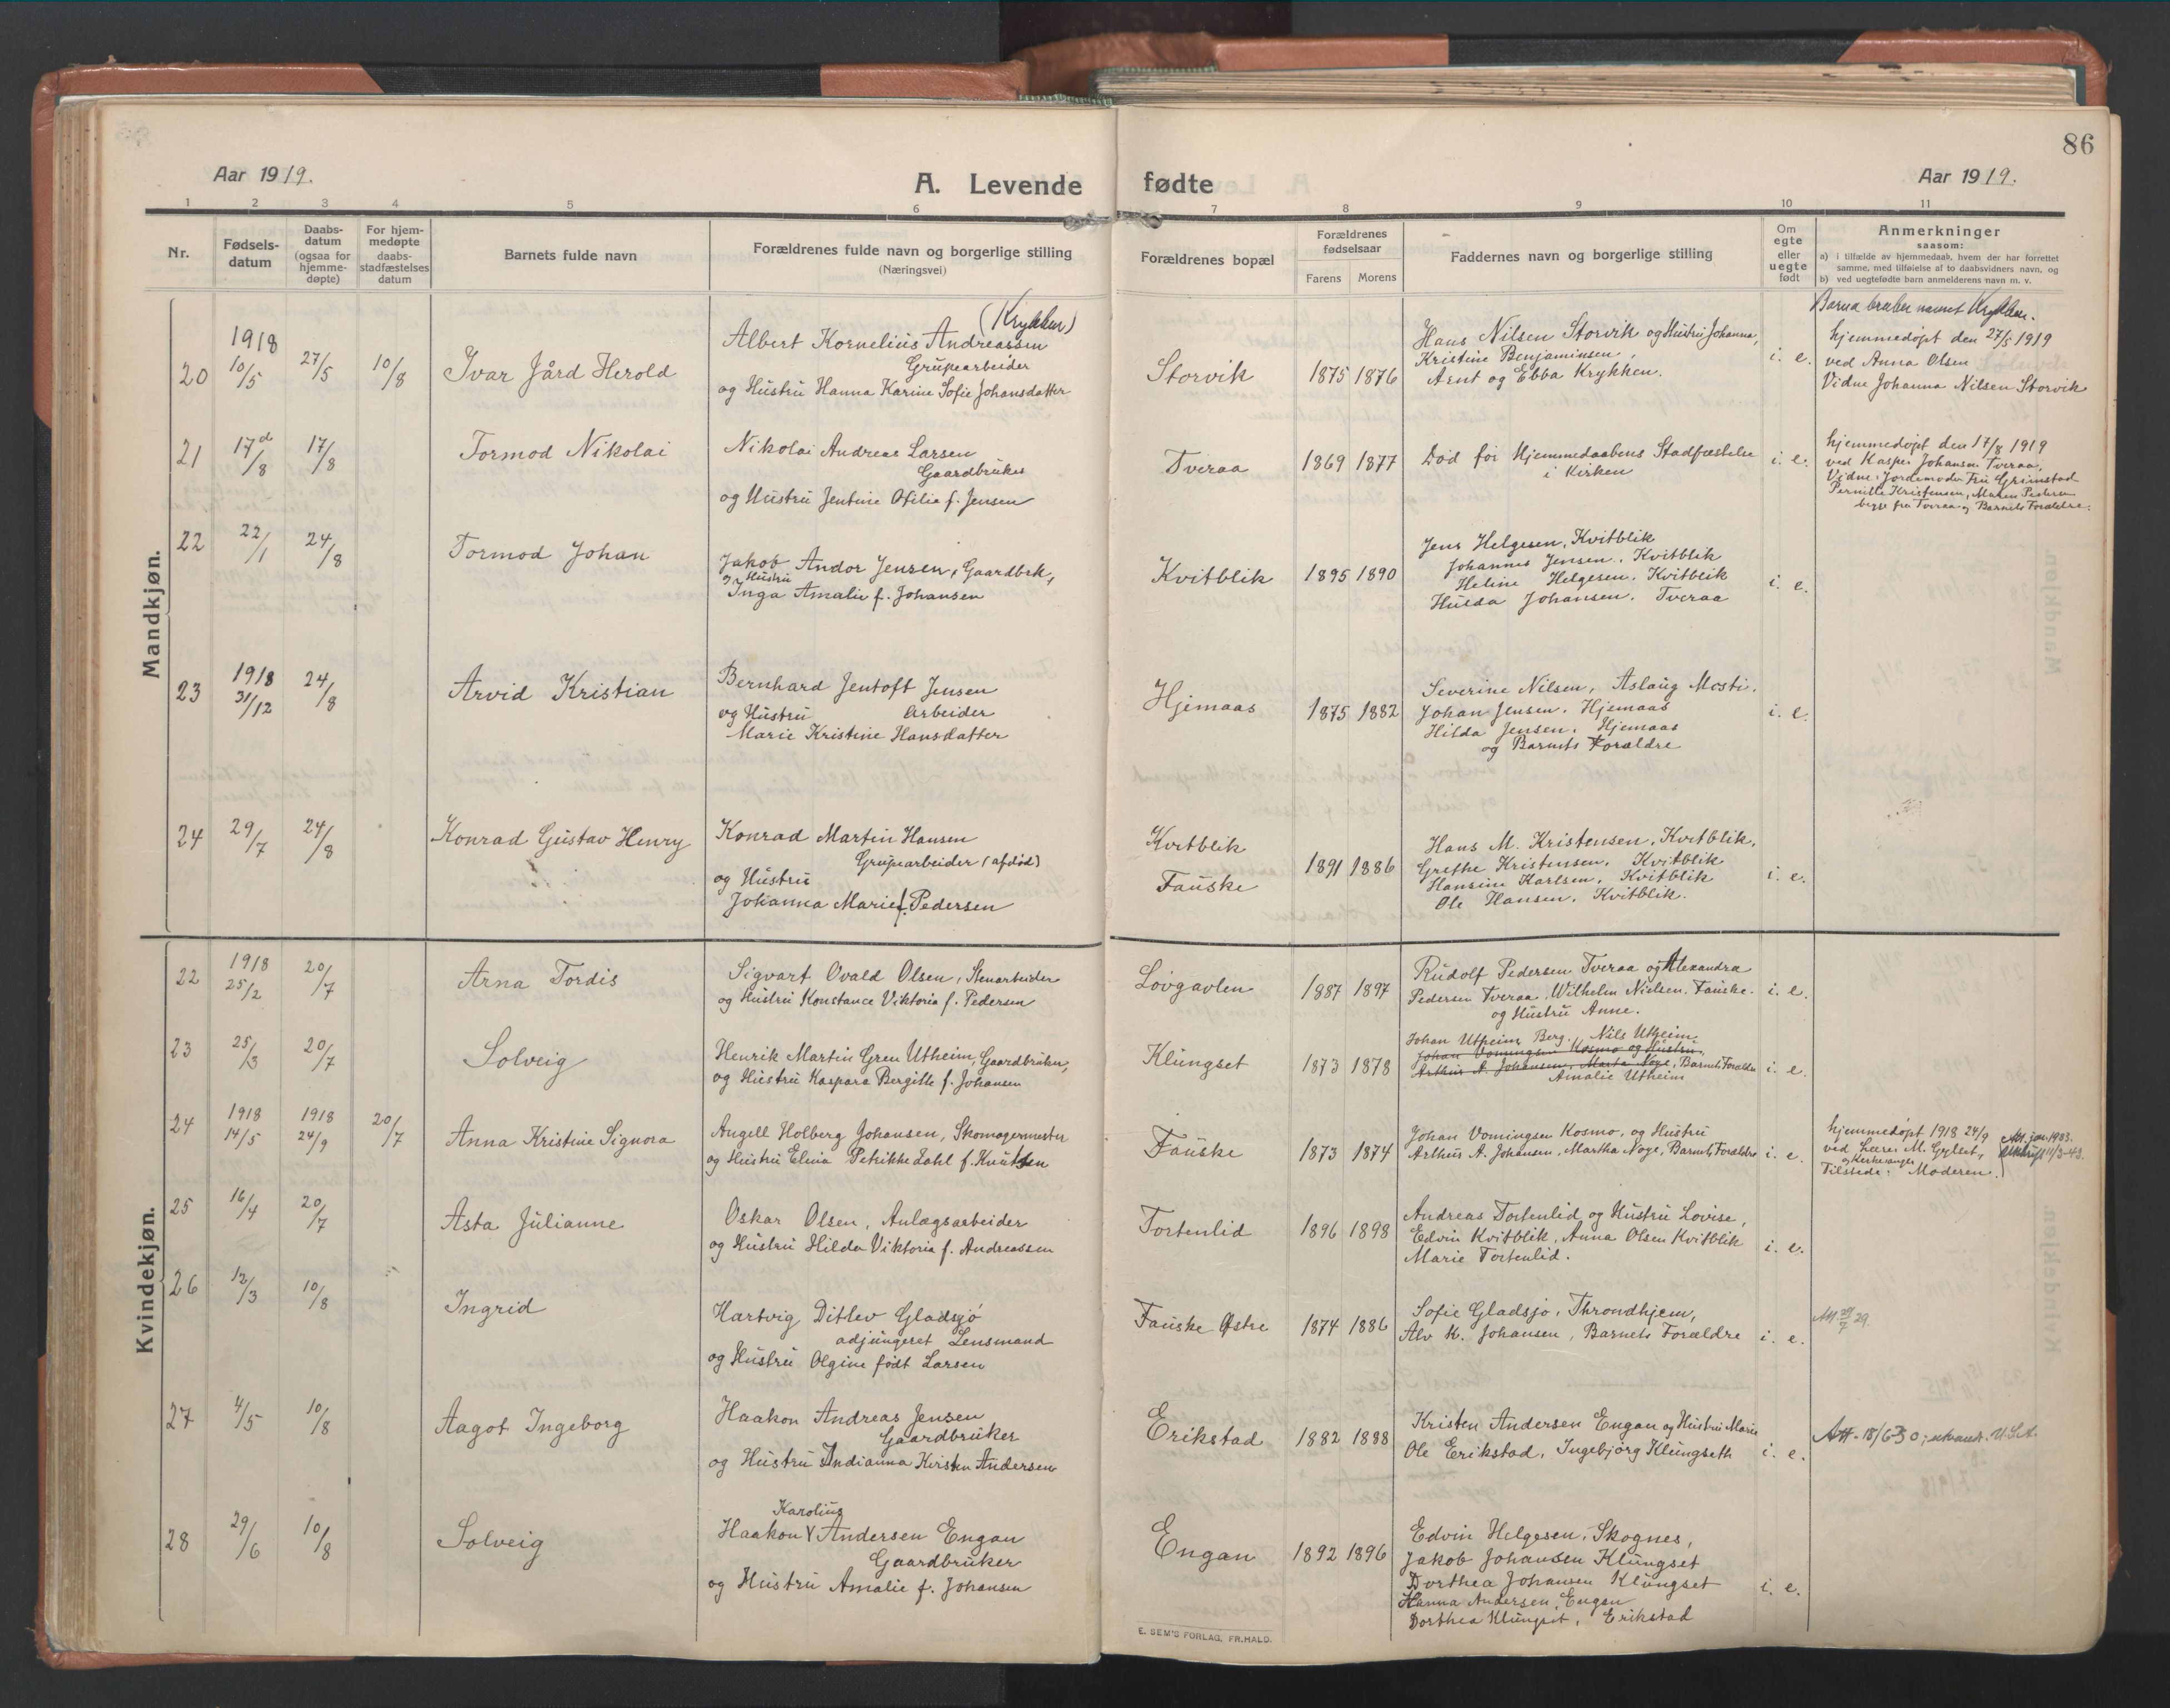 86
Aar 1919.
A. Levende fødte
Aar 1919.
1 2 3 4 5 6 7 8 9 10 11
Nr.
Fødsels-
datum
Daabs-
datum
(ogsaa for
hjemme-
døpte)
For hjem-
medøpte
daabs-
stadfæstelses
datum
Barnets fulde navn
Forældrenes fulde navn og borgerlige stilling
(Næringsvei)
Forældrenes bopæl
Forældrenes
fødselsaar
Farens Morens
Faddernes navn og borgerlige stilling
Om
egte
eller
uegte
født
Anmerkninger
saasom:
a) i tilfælde av hjemmedaab, hvem der har forrettet
samme, med tilføielse af to daabsvidners navn, og
b) ved uegtefødte barn anmelderens navn m. v.
Mandkjøn.
20
1918
10/5
27/5
10/8
Ivar Jård Herold
(Krykken)
Albert Kornelius Andreassen
Grubearbeider
og Hustru Hanna Karine Sofie Johansdatter
Storvik
1875 1876
Hans Nilsen Storvik og Hustru Johanna,
Kristine Benjaminsen,
Arnt og Ebba Krykken.
i. e.
Barna bruker navnet Krykken.
hjemmedøpt den 27/5 1919
ved Anna Olsen
Vidne Johanna Nilsen Storvik
21
17d/8
17/8
Tormod Nikolai
Nikolai Andreas Larsen
Gaardbruker
og Hustru Jentine Otilie f. Jensen
Tveraa
1869 1877
Død før Hjemmedaabens Stadfæstelse
i Kirken
i. e.
hjemmedøpt den 17/8 1919
ved Kasper Johansen Tveraa,
Vidne: Jordemoder Fru Grimstad
Pernille Kristensen, Maren Pedersen
begge fra Tveraa og Barnets Forældre.
22
22/1
24/8
Tormod Johan
Jakob Andor Jensen, Gaardbrk,
og Hustru
Inga Amalie f. Johansen
Kvitblik
1895 1890
Jens Helgesen, Kvitblik
Johannes Jensen, Kvitblik
Heline Helgesen, Kvitblik
Hulda Johansen. Tveraa
i. e.
23
1918
31/12
24/8
Arvid Kristian
Bernhard Jentoft Jensen
og Hustru Arbeider
Marie Kristine Hansdatter
Hjemaas
1875 1882
Severine Nilsen, Aslaug Mosti.
Johan Jensen. Hjemaas
Hilda Jensen. Hjemaas
og Barnets Forældre
i. e.
24
29/7
24/8
Konrad Gustav Henry
Konrad Martin Hansen
Grubearbeider (afdød)
og Hustru
Johanna Marie f. Pedersen
Kvitblik
Fauske
1891 1886
Hans M. Kristensen, Kvitblik,
Grethe Kristensen, Kvitblik
Hansine Karlsen, Kvitblik
Ole Hansen. Kvitblik.
i. e.
Kvindekjøn.
22
1918
25/2
20/7
Arna Tordis
Sigvart Ovald Olsen, Stenarbeider
og Hustru Konstance Viktoria f. Pedersen
Løvgavlen
1887 1897
Rudolf Pedersen Tveraa og Alexandra
Pedersen Tveraa, Wilhelm Nielsen. Fauske.
og Hustru Anne.
i. e.
23
25/3
20/7
Solveig
Henrik Martin Gren Utheim, Gaardbruker,
og Hustru Kaspara Bergitte f. Johansen
Klungset
1873 1878
Johan Utheim, Berg. Nils Utheim,
Johan Vomingsen Kosmo og Hustru,
Arthur A. Johansen, Marta Noge, Barnets Forældre
Amalie Utheim
i. e.
24
1918
14/5
1918
24/9
20/7
Anna Kristine Signora
Angell Holberg Johansen, Skomagermester
og Hustru Elina Petrikke Dahl f. Knutsen
Fauske
1873 1874
Johan Vomingsen Kosmo, og Hustru
Arthur A. Johansen, Martha Noge, Barnets Forældre
i. e.
hjemmedøpt 1918 24/9
ved Lærer M. Gylset,
og Kirkesanger
Tilstede: Moderen.
25
16/4
20/7
Asta Julianne
Oskar Olsen, Anlægsarbeider
og Hustru Hilda Viktoria f. Andreassen
Tortenlid
1896 1898
Andreas Tortenlid og Hustru Lovise,
Edvin Kvitblik, Anna Olsen Kvitblik
Marie Tortenlid.
i. e.
26
12/3
10/8
Ingrid
Hartvig Ditlev Gladsjø
adjungeret Lensmand
og Hustru Olgine født Larsen
Fauske Østre
1874 1886
Sofie Gladsjø, Throndhjem,
Alv K. Johansen, Barnets Forældre
i. e.
Att. 29/7 29.
27
4/5
10/8
Aagot Ingeborg
Haakon Andreas Jensen
Gaardbruker
og Hustru Indianna Kristen Andersen
Erikstad
1882 1888
Kristen Andersen Engan og Hustru Marie
Ole Erikstad, Ingebjørg Klungseth
i. e.
Att. 18/6-30; utvandr. U.S.A.
28
29/6
10/8
Solveig
Karolius
Haakon Andersen Engan
Gaardbruker
og Hustru Amalie f. Johansen
Engan
1892 1896
Edvin Helgesen, Skognes,
Jakob Johansen Klungset
Dorthea Johansen Klungset
Hanna Andersen, Engan
Dorthea Klungset, Erikstad
i. e.
E. SEM'S FORLAG, FR.HALD.